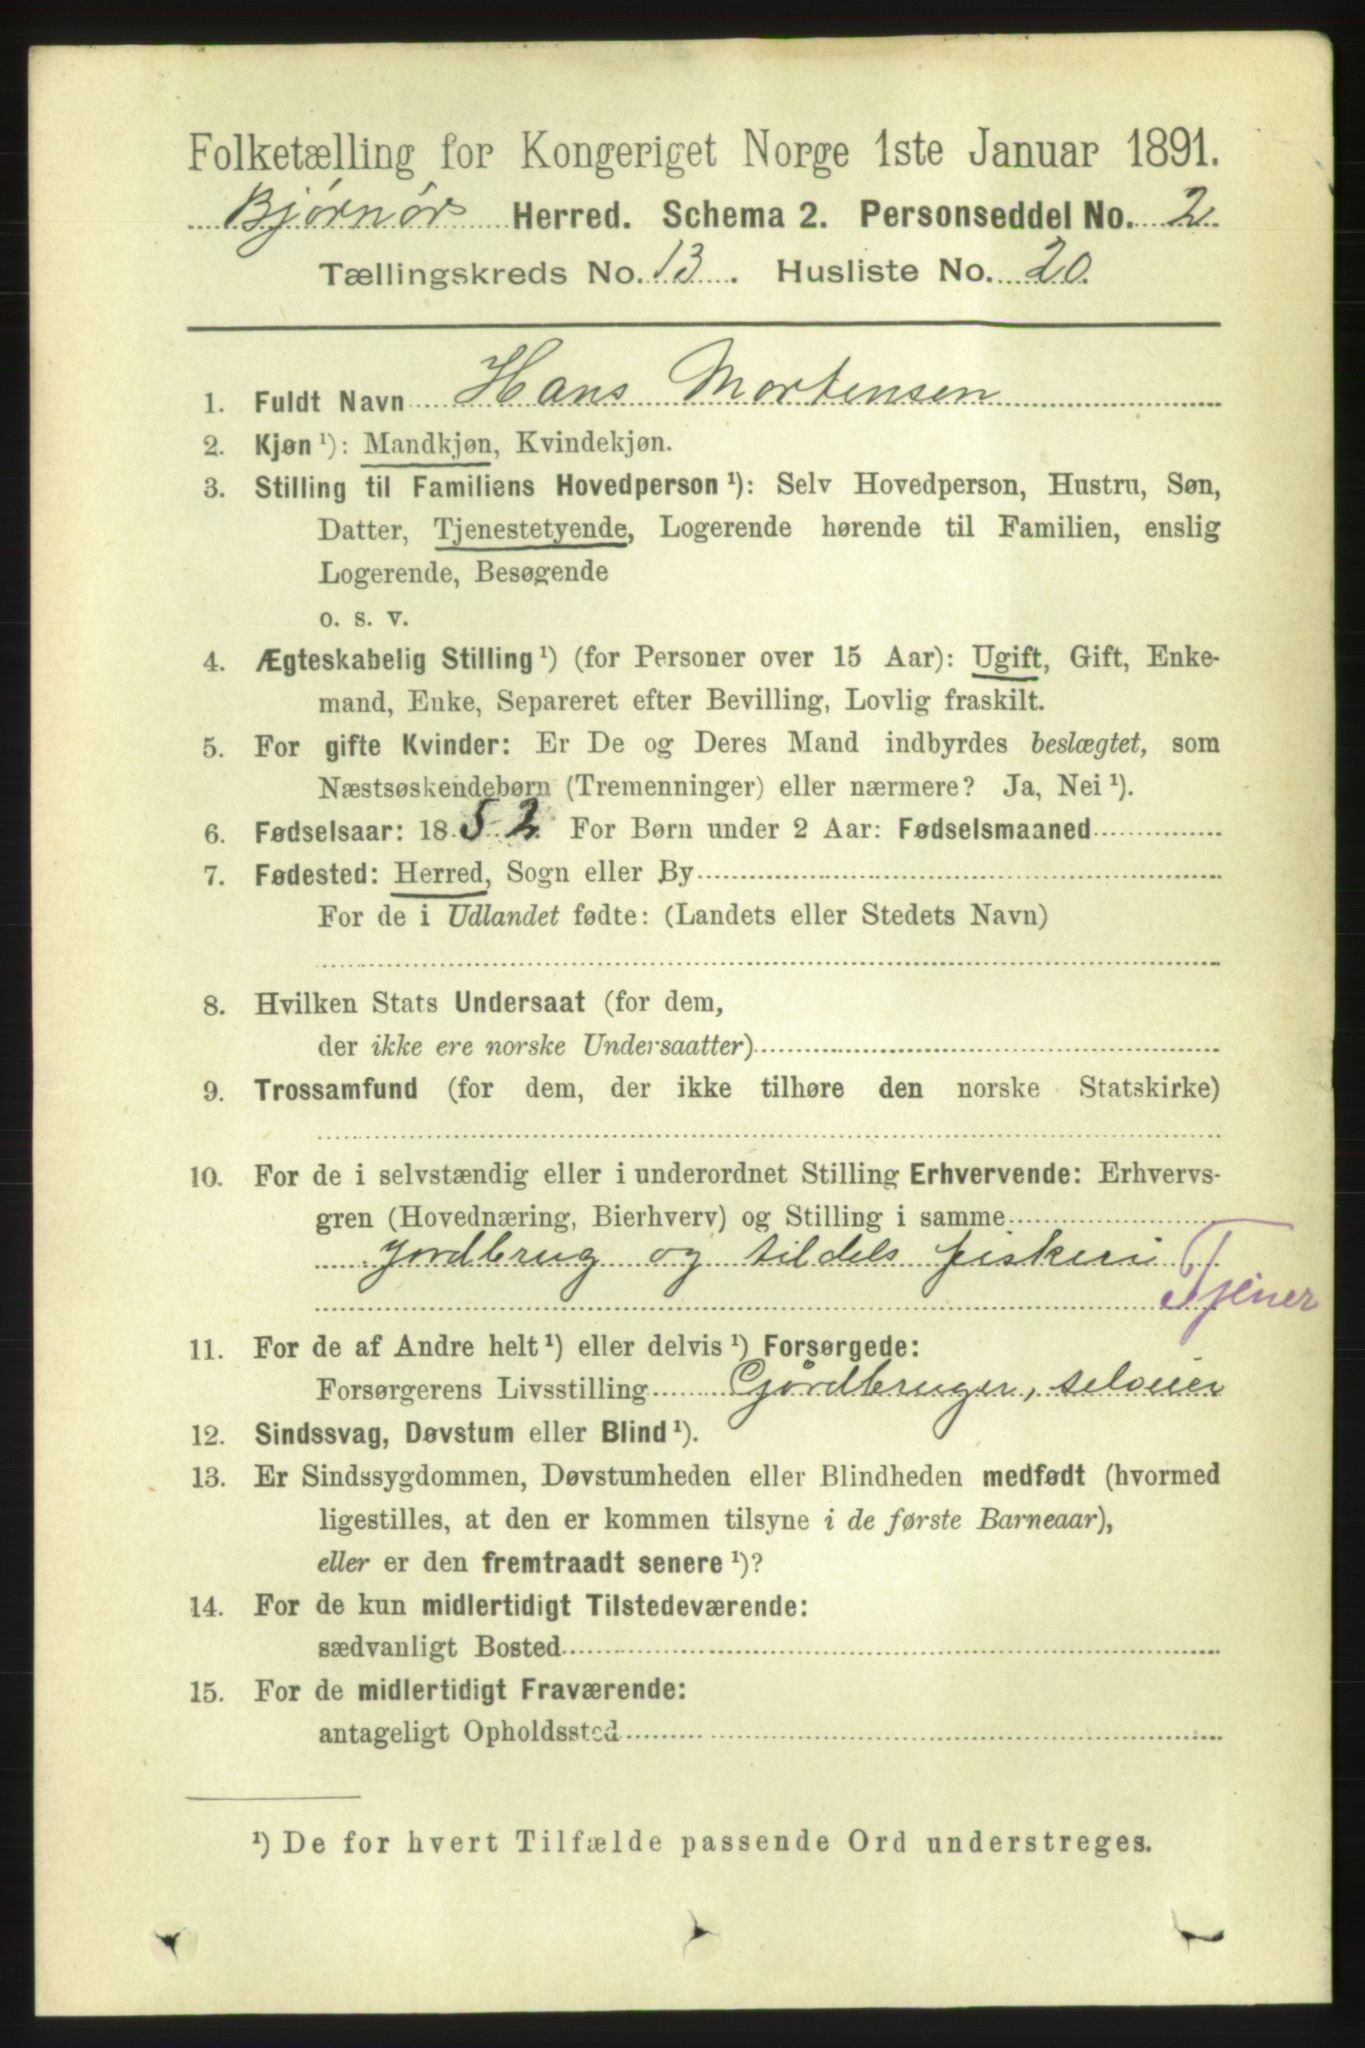 Folketælling for Kongeriget Norge 1ste Januar 1891.
Bjørnør Herred. Schema 2. Personseddel No. 2
Tællingskreds No. 13. Husliste No. 20.
1. Fuldt Navn Hans Mortensen
2. Kjøn ¹): Mandkjøn, Kvindekjøn.
3. Stilling til Familiens Hovedperson ¹): Selv Hovedperson, Hustru, Søn,
Datter, Tjenestetyende, Logerende hørende til Familien, enslig
Logerende, Besøgende
o. s. v.
4. Ægteskabelig Stilling ¹) (for Personer over 15 Aar): Ugift, Gift, Enke-
mand, Enke, Separeret efter Bevilling, Lovlig fraskilt.
5. For gifte Kvinder: Er De og Deres Mand indbyrdes beslægtet, som
Næstsøskendebørn (Tremenninger) eller nærmere? Ja, Nei ¹).
6. Fødselsaar: 1852. For Børn under 2 Aar: Fødselsmaaned
7. Fødested: Herred, Sogn eller By
For de i Udlandet fødte: (Landets eller Stedets Navn)
8. Hvilken Stats Undersaat (for dem,
der ikke ere norske Undersaatter)
9. Trossamfund (for dem, der ikke tilhøre den norske Statskirke)
10. For de i selvstændig eller i underordnet Stilling Erhvervende: Erhvervs-
gren (Hovednæring, Bierhverv) og Stilling i samme
Jordbrug og tildels fiskeri
Tjener
11. For de af Andre helt ¹) eller delvis ¹) Forsørgede:
Forsørgerens Livsstilling Gjårdbruger, selveier
12. Sindssvag, Døvstum eller Blind ¹).
13. Er Sindssygdommen, Døvstumheden eller Blindheden medfødt (hvormed
ligestilles, at den er kommen tilsyne i de første Barneaar),
eller er den fremtraadt senere ¹)?
14. For de kun midlertidigt Tilstedeværende:
sædvanligt Bosted
15. For de midlertidigt Fraværende:
antageligt Opholdssted
¹) De for hvert Tilfælde passende Ord understreges.